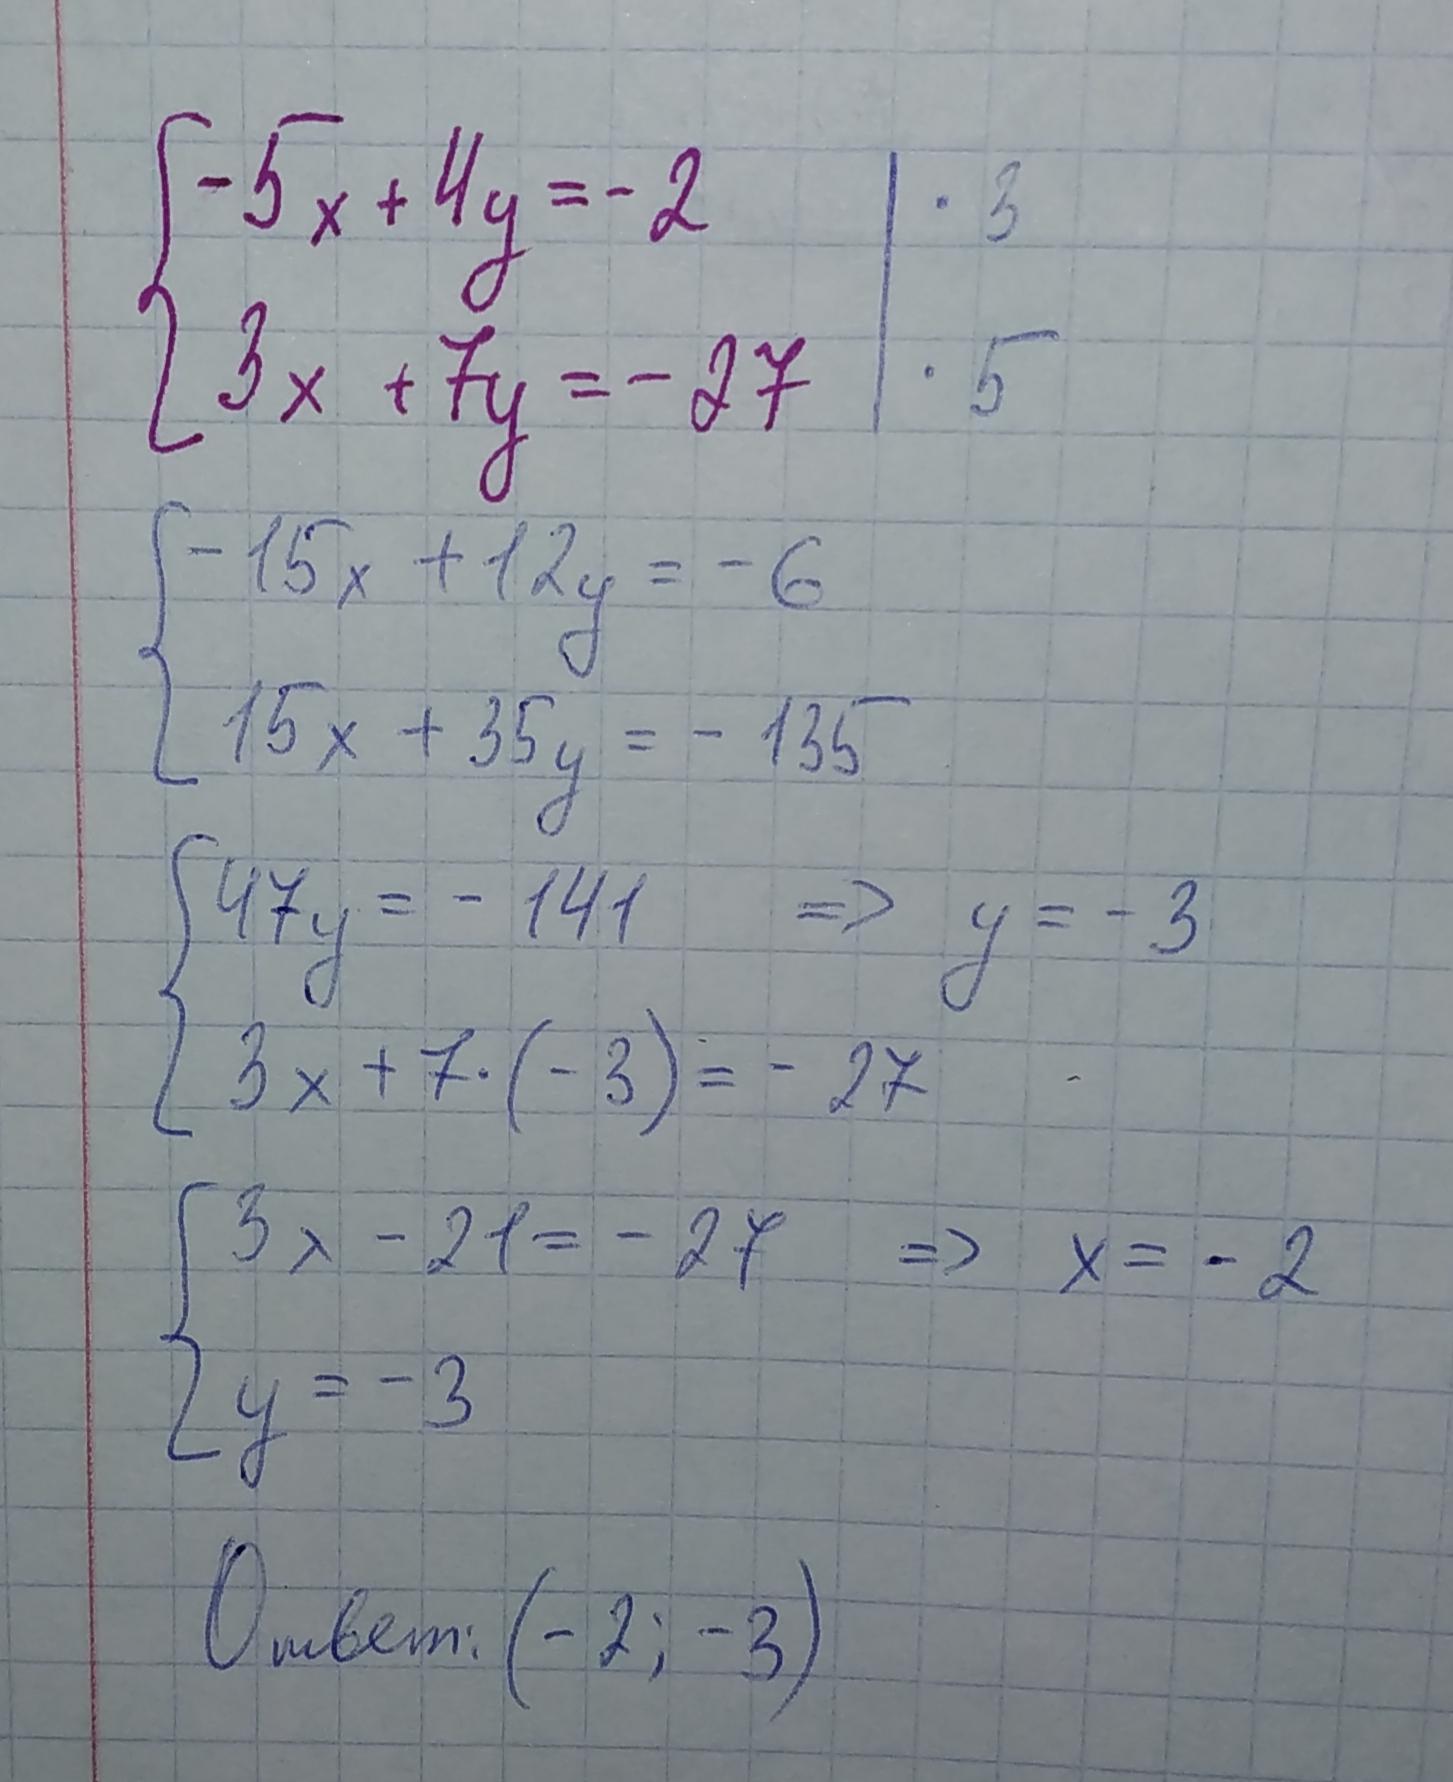 {-5x + 4y = -2 | · 3
3x + 7y = -27 | · 5
{-15x + 12y = -6
15x + 35y = -135
{47y = -141 => y = -3
3x + 7·(-3) = -27
{3x - 21 = -27 => x = -2
y = -3
Ответ: (-2; -3)